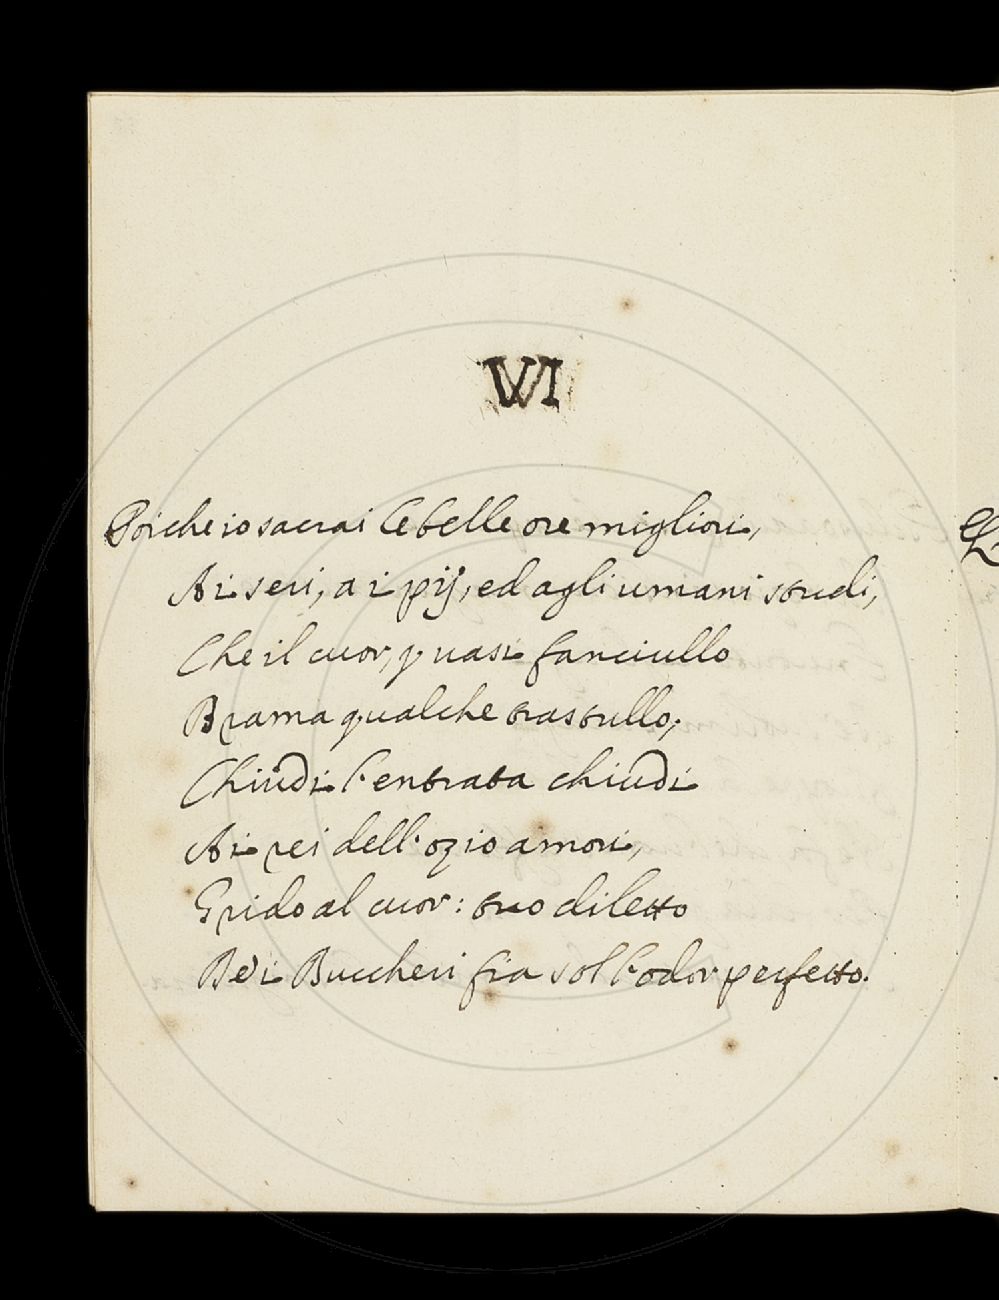 VI
Poiche io sacrai le belle ore migliori,
Ai seri, a i pij, ed agli umani studi,
Che il cuor, quasi fanciullo
Brama qualche trastullo;
Chiudi l'entrata chiudi
Ai rei dell'ozio amori,
Grido al cuor: tuo diletto
Dei Buccheri fia sol l'odor perfetto.